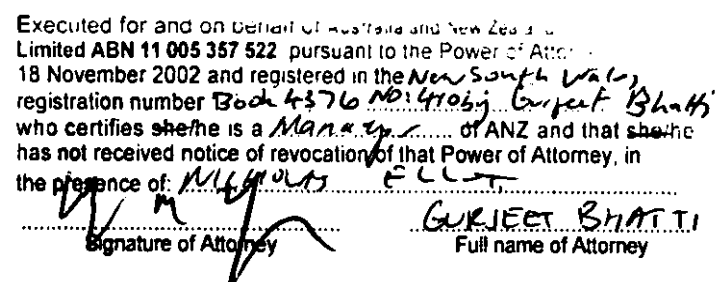 Executed for and on behalf of Australia and New Zea
Limited ABN 11 005 357 522 pursuant to the Power of Atto
18 November 2002 and registered in the New South Wales
registration number Book 4376 NO: 410 by Gurjeet Bhatti
who certifies she/he is a Manager of ANZ and that she/he
has not received notice of revocation of that Power of Attorney, in
the presence of:
GURJEET BHATTI
Signature of Attorney Full name of Attorney